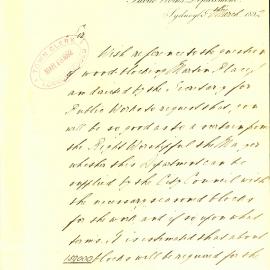 Public Works Department,
Sydney, March 189
TOWN CLERK'S
Sir
With reference to the question
of wood blocking Martin Place, I
am directed by the Secretary for
Public Works to request that you
will be so good as to ascertain from
the Right Worshipful the Mayor
whether this Department can be
supplied by the City Council with
the necessary seasoned blocks
for the work and if so upon what
terms. It is estimated that about
blocks will be required for the